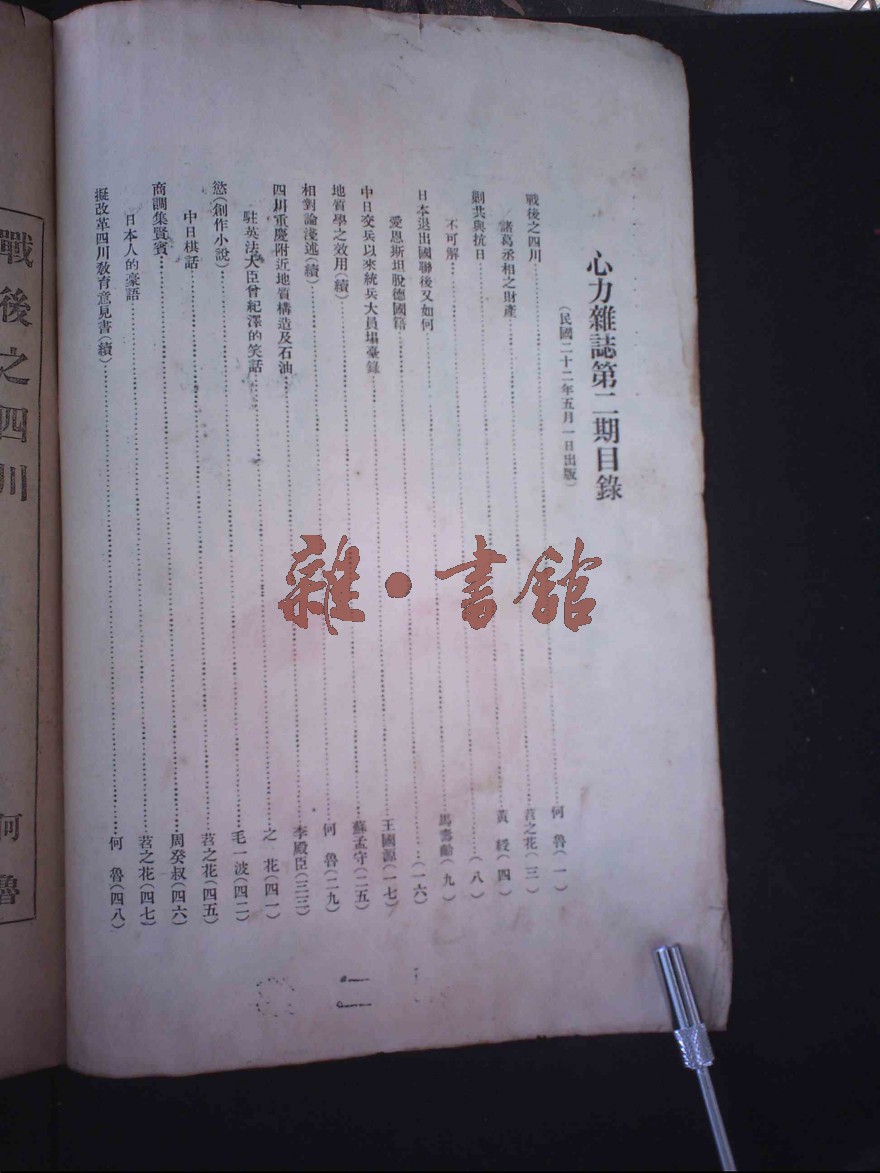 心力雜誌第二期目錄
(民國二十二年五月一日出版)
戰後之四川……何魯(一)
諸葛丞相之財產……苕之花(三)
剿共與抗日……黃綬(四)
不可解……(八)
日本退出國聯後又如何……馬壽齡(九)
愛恩斯坦脫德國籍……(一六)
中日交兵以來統兵大員塌臺錄……王國源(一七)
地質學之效用(續)……蘇孟守(二五)
相對論淺述(續)……何魯(二九)
四川重慶附近地質構造及石油……李殿臣(三三)
駐英法大臣曾紀澤的笑話……之花(四一)
慾(創作小說)……毛一波(四二)
中日棋話……苕之花(四五)
商調集賢賓……周癸叔(四六)
日本人的豪語……苕之花(四七)
擬改革四川教育意見書(續)……何魯(四八)
戰後之四川 何魯
雜·書館